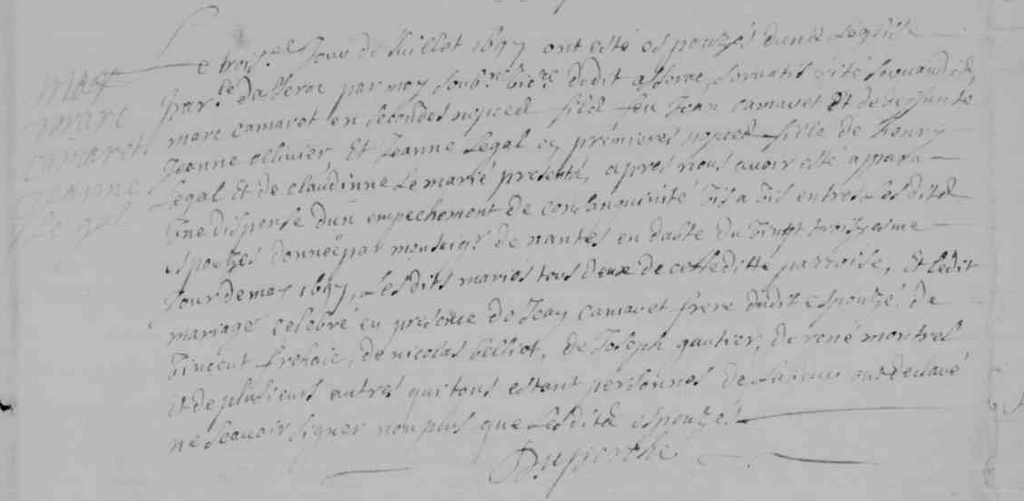 marc
camaret
Jeanne
Le gal
Le trois.e Jour de Juillet 1697 ont esté espouzés dans L'eglise
par.le d'asserac par moy soub.ne vic.re dudit asserac, servatis
marc camaret en secondes nopces fils feu Jean camaret et deffunte
Jeanne ollivier, Et Jeanne Legal en premieres nopces fille de Henry
Legal Et de claudinne Lemarié presente, apres nous avoir esté apparu
Une dispense d'un empechement de consanguinité Vis a Vis entre Lesdits
espouzés donnée par monseig.r de nantes en datte du Vingt troizesme
Jour de may 1697, Lesdits mariés tous deux de cette ditte parroise, Et ledit
mariage celebré en presence de Jean camaret frere dudit espouzé, de
Vincent de nicolas belliot, de Joseph gautier, de rené montres
Et de plusieurs autres qui tous estant personnes de Labeur ont declaré
ne scavoir signer non plus que Lesdits espouzés